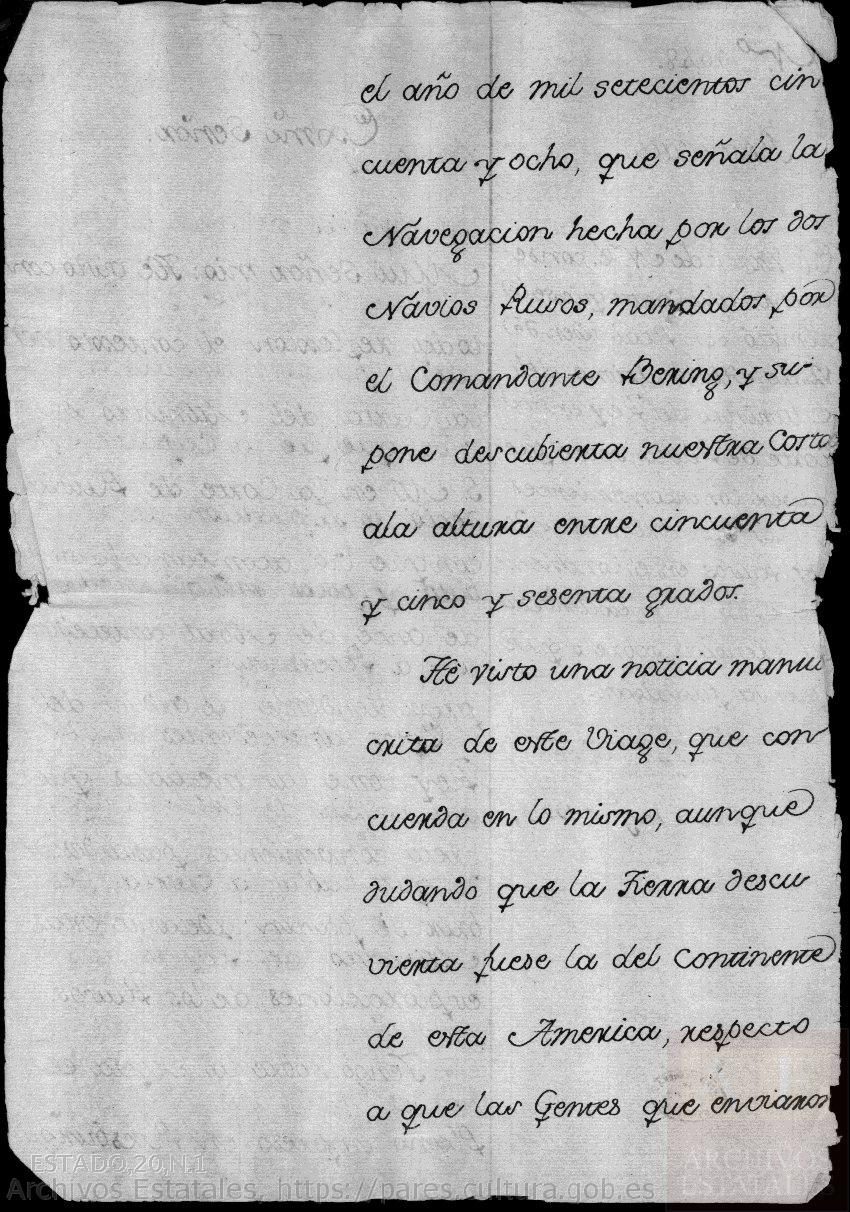 el año de mil setecientos cin
cuenta y ocho, que señala la
Navegacion hecha por los dos
Návios Rusos, mandados por
el Comandante Bering, y su
pone descubierta nuestra Costa
ala altura entre cincuenta
y cinco y sesenta grados.
Hé visto una noticia manu
crita de este Viage, que con
cuerda en lo mismo, aunque
dudando que la Tierra descu
vierta fuese la del Continente
de esta America, respecto
a que las Gentes que enviaron
ESTADO,20,N.1
Archivos Estatales, https://pares.cultura.gob.es
ARCHIVOS
ESTATALES